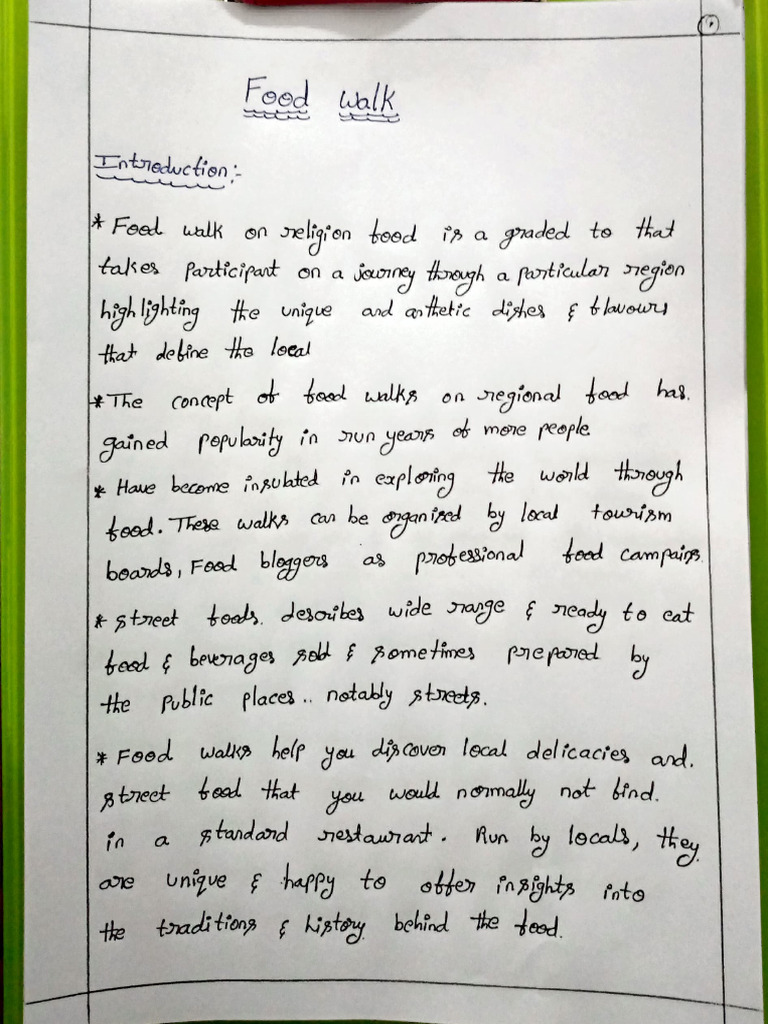 Food walk
Introduction:-
* Food walk on religion food is a graded to that
takes participant on a journey through a particular region
highlighting the unique and anthetic dishes & flavours
that define the local
* The concept of food walks on regional food has.
gained popularity in run years of more people
* Have become insulated in exploring the world through
food. These walks can be organised by local tourism
boards, Food bloggers as professional food campains.
* street foods. describes wide range & ready to eat
food & beverages sold & sometimes prepared by
the public places.. notably streets.
* Food walks help you discover local delicacies and.
street food that you would normally not find.
in a standard restaurant. Run by locals, they
are unique & happy to offer insights into
the traditions & history behind the food.